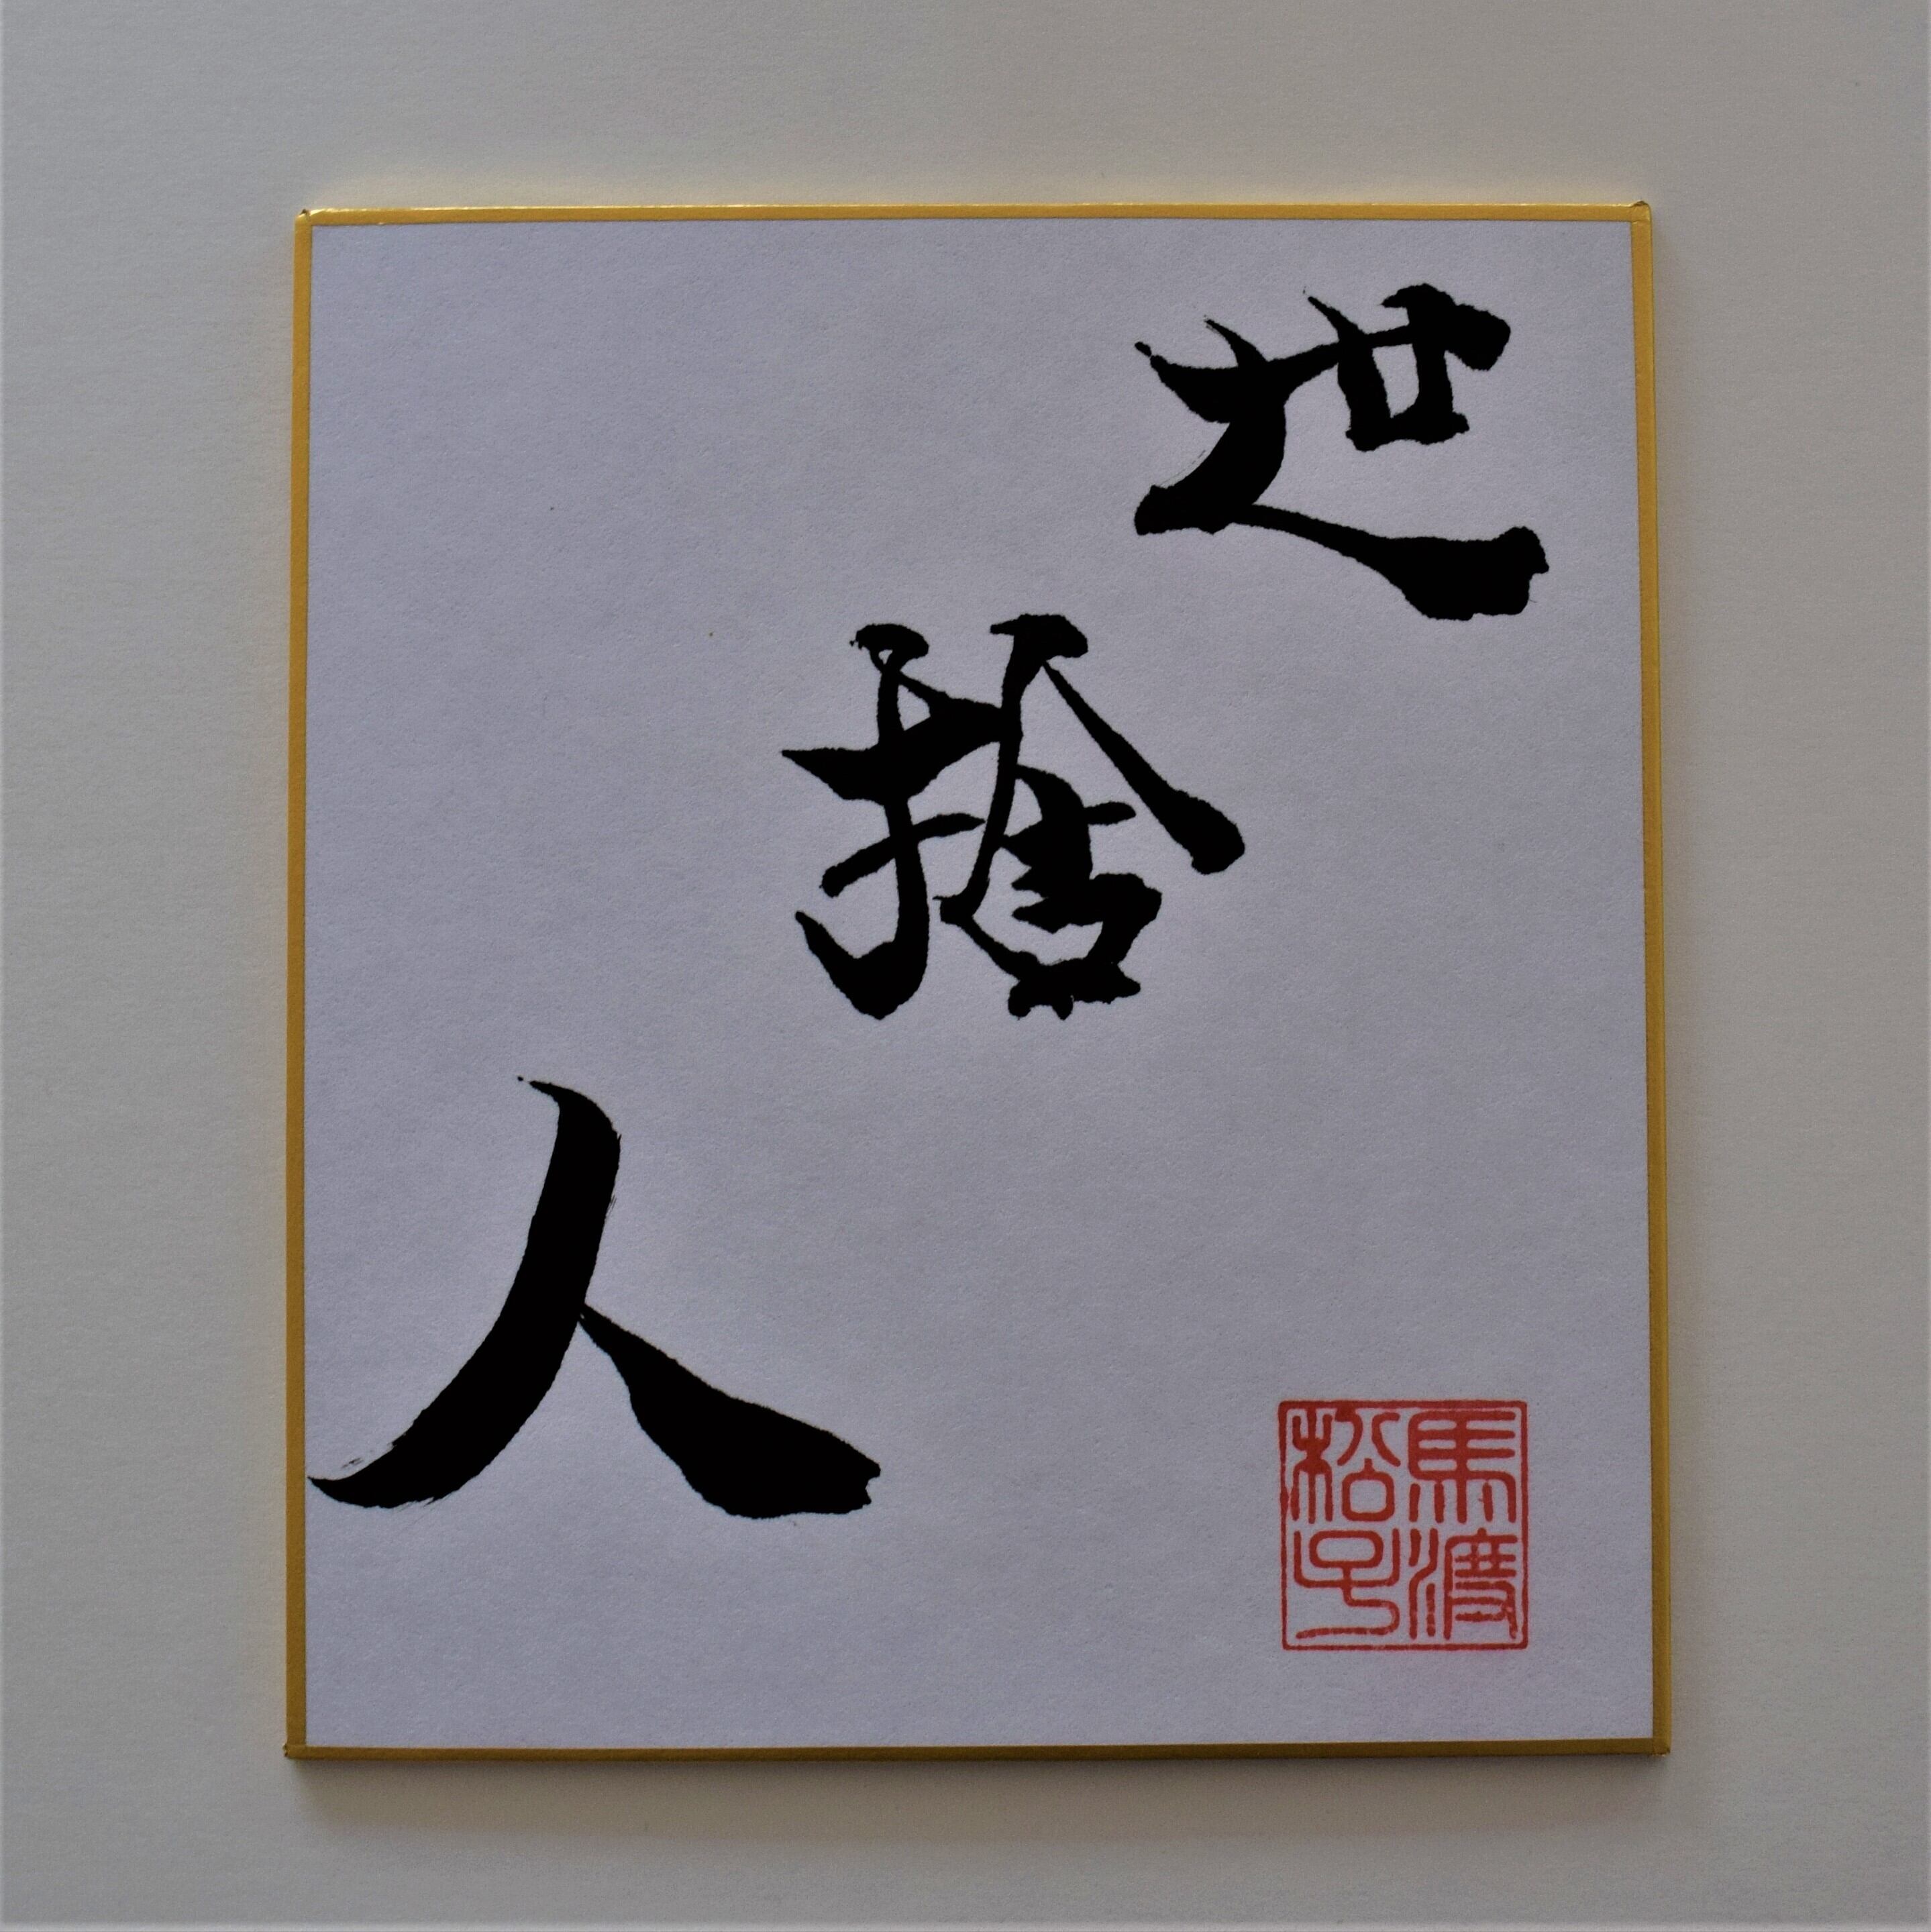 世捨人
馬渡
松子